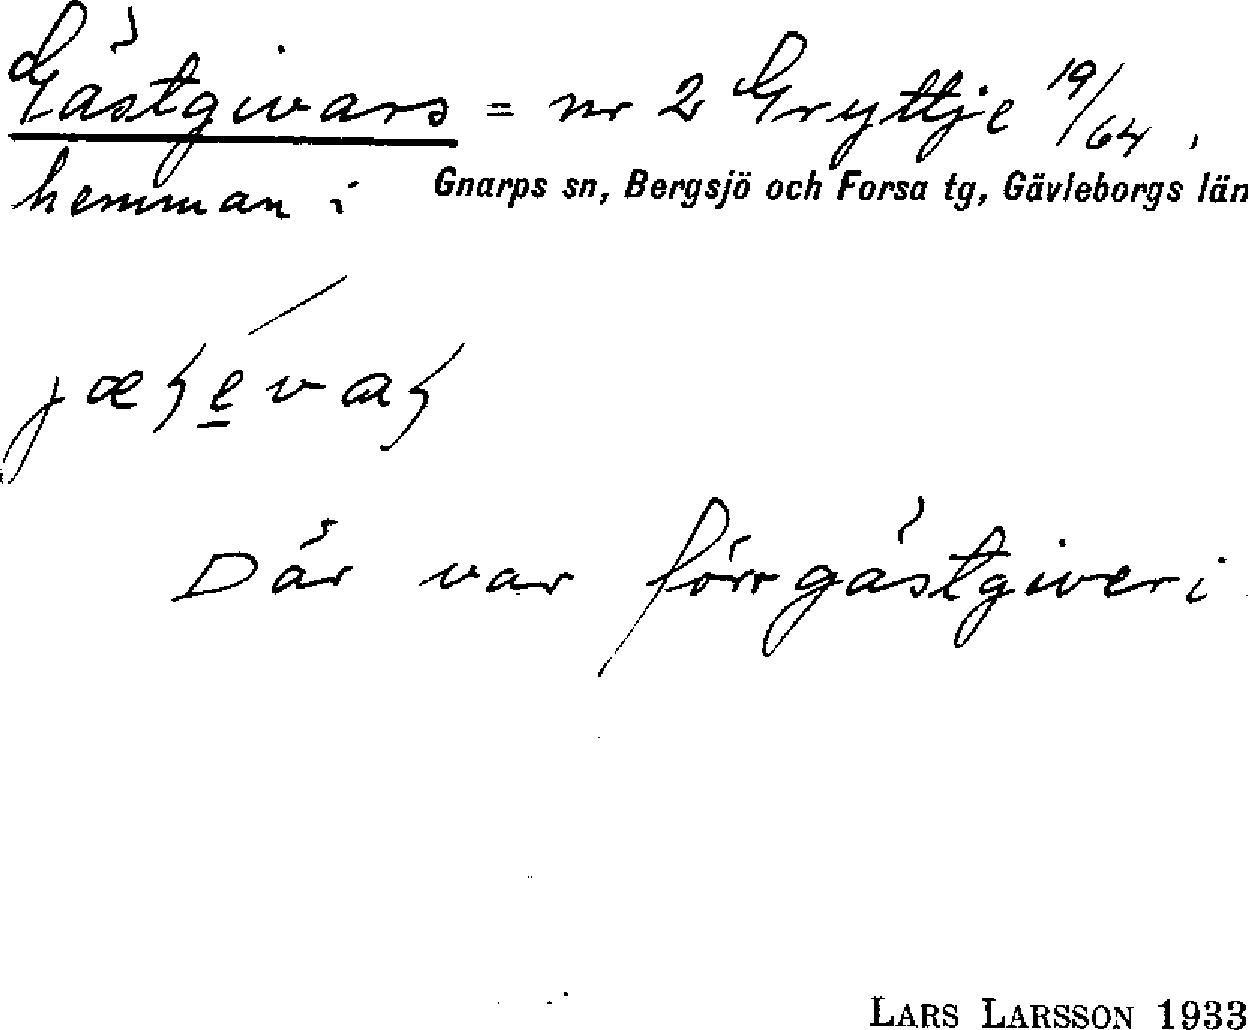 Gästgivars = nr 2 Gryttje 19/64.
hemman i Gnarps sn, Bergsjö och Forsa tg, Gävleborgs län
Där var förr gästgiveri.
LARS LARSSON 1933